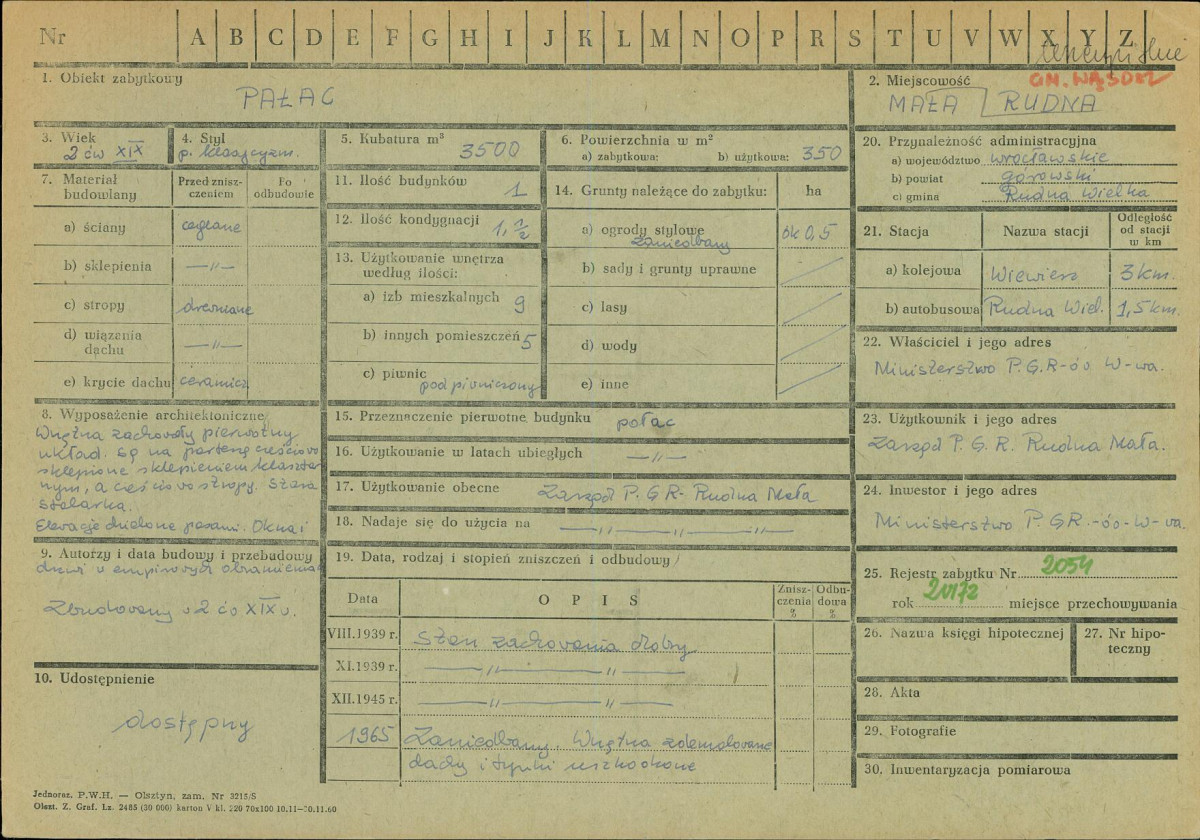 Nr A B C D E F G H I J K L M N O P R S T U V W X Y Z
1. Obiekt zabytkowy
PAŁAC
2. Miejscowość
GM. WĄSOSZ
MAŁA RUDNA
3. Wiek
2 ćw XIX
4. Styl
p. klasycyzm.
5. Kubatura m³
3500
6. Powierzchnia w m²
a) zabytkowa: b) użytkowa: 350
7. Materiał budowlany
Przed znisz-
czeniem
Po
odbudowie
a) ściany ceglane
b) sklepienia —〃—
c) stropy drewniane
d) wiązenia
dachu —〃—
e) krycie dachu ceramicz.
8. Wyposażenie architektoniczne
Wnętrza zachowały pierwotny
układ. Są na parterze częściowo
sklepione sklepieniem klasztor
nym, a częściowo stropy. Stara
stolarka.
Elewacje dzielone pasami. Okna i
9. Autorzy i data budowy i przebudowy
drzwi w empirowych obramieniach
Zbudowany w 2 ćw XIX w.
10. Udostępnienie
dostępny
11. Ilość budynków 1
12. Ilość kondygnacji 1, 1/2
13. Użytkowanie wnętrza
według ilości:
a) izb mieszkalnych 9
b) innych pomieszczeń 5
c) piwnic
podpiwniczony
14. Grunty należące do zabytku: ha
a) ogrody stylowe ok 0,5
zaniedbany
b) sady i grunty uprawne
c) lasy
d) wody
e) inne
15. Przeznaczenie pierwotne budynku pałac
16. Użytkowanie w latach ubiegłych —〃—
17. Użytkowanie obecne Zarząd P.G.R. Rudna Mała
18. Nadaje się do użycia na —〃—〃—〃—
19. Data, rodzaj i stopień zniszczeń i odbudowy
Data
OPIS
Znisz-
czenia
%
Odbu-
dowa
%
VIII.1939 r. Stan zachowania dobry
XI.1939 r. —〃—〃—
XII.1945 r. —〃—〃—
1965 Zaniedbany. Wnętrza zdemolowane
dachy i tynki uszkodzone
20. Przynależność administracyjna
a) województwo wrocławskie
b) powiat górowski
c) gmina Rudna Wielka
21. Stacja
Nazwa stacji
Odległość
od stacji
w km
a) kolejowa Wiewierz 3 km.
b) autobusowa Rudna Wiel. 1,5 km.
22. Właściciel i jego adres
Ministerstwo P.G.R-ów W-wa.
23. Użytkownik i jego adres
Zarząd P.G.R. Rudna Mała.
24. Inwestor i jego adres
Ministerstwo P.GR.-ów-W-wa.
25. Rejestr zabytku Nr 2054
rok miejsce przechowywania
26. Nazwa księgi hipotecznej
27. Nr hipo-
teczny
28. Akta
29. Fotografie
30. Inwentaryzacja pomiarowa
Jednoraz. P.W.H. — Olsztyn, zam. Nr 3215/S
Olszt. Z. Graf. Lz. 2485 (30 000) karton V kl. 220 70x100 10.11—30.11.60